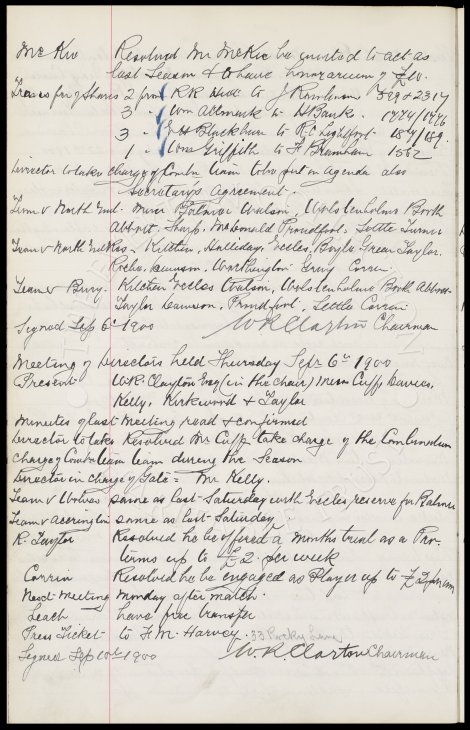 Mr McKie Resolved Mr McKie be invited to act as
last Season & to have honorarium of £10.
Transfer of Shares 2 from R R to J Rowlinson 899 & 2317
3 - Wm Allmark to H Banks. 1474/1476
3 - J H Blackburn to R C Lightfoot. 187/189.
1 - Wm Griffith to F Brennan 1562
Director to take charge of Combn team to be put on agenda also
Secretary's Agreement.
Team v North End. Muir Balmer Watson, Wolstenholme Booth
Abbott, Sharp, McDonald Proudfoot, Settle Turner
Team v North End Res - Kitchen, Halliday, Eccles, Boyle Green Taylor,
Roche, Dawson, Worthington Gray Corrin.
Team v Bury. Kitchen Eccles Watson, Wolstenholme Booth Abbott
Taylor Dawson, Proudfoot, Settle Corrin
Signed Sep 6th 1900 W R Clayton Chairman
Meeting of Directors held Thursday Sepr 6th 1900
Present W.R. Clayton Esq (in the chair) Messrs Cuff, Davies,
Kelly, Kirkwood & Taylor
Minutes of last meeting read & confirmed
Director to take Resolved Mr Cuff take charge of the Combination
charge of Combn team team during the Season
Director in charge of Gate = Mr Kelly.
Team v Wolves same as last Saturday with Eccles, reserve for Balmer
Team v Accrington same as last Saturday
R. Taylor Resolved he be offered a months trial as a Pro-
terms up to £2. per week
Corrin Resolved he be engaged as Player up to £2 per
Next meeting Monday after match.
Leach have free transfer
Press Ticket to F. M. Harvey. 33 Rocky Lane
Signed Sep 10th 1900 W.R. Clayton Chairman